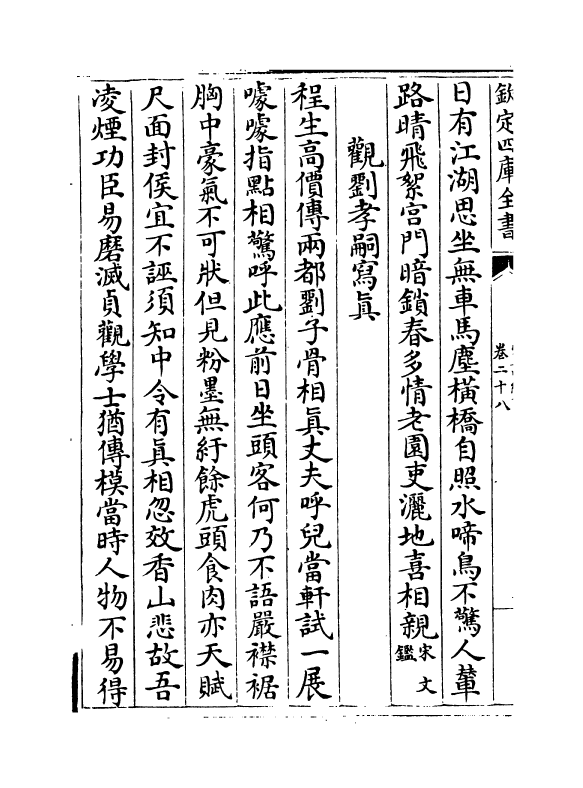 欽定四庫全書
卷二十八
日有江湖思坐無車馬塵橫橋自照水啼鳥不驚人輦
路晴飛絮宮門暗鎖春多情老園吏灑地喜相親宋文鑑
觀劉孝嗣寫眞
程生高價傳兩都劉子骨相眞丈夫呼兒當軒試一展
噱噱指點相驚呼此應前日坐頭客何乃不語嚴襟裾
胸中豪氣不可狀但見粉墨無紆餘虎頭食肉亦天賦
尺面封侯宜不誣須知中令有眞相忽效香山悲故吾
凌煙功臣易磨滅貞觀學士猶傳模當時人物不易得